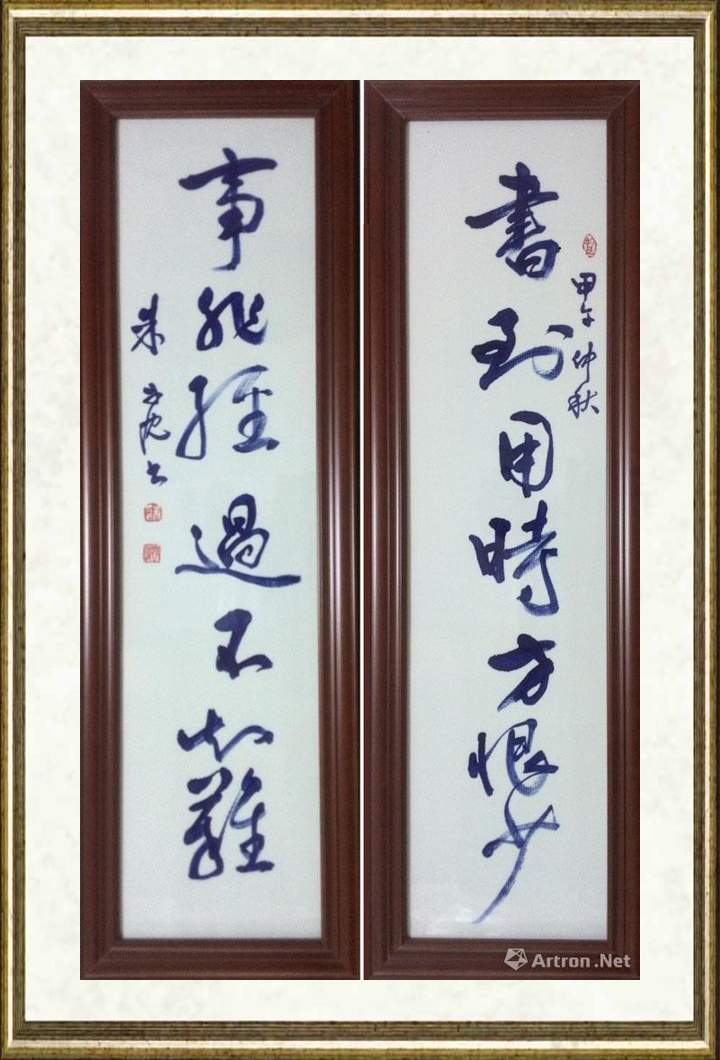 書到用時方恨少
甲午仲秋
事非經過不知難
朱
書
Artron.Net